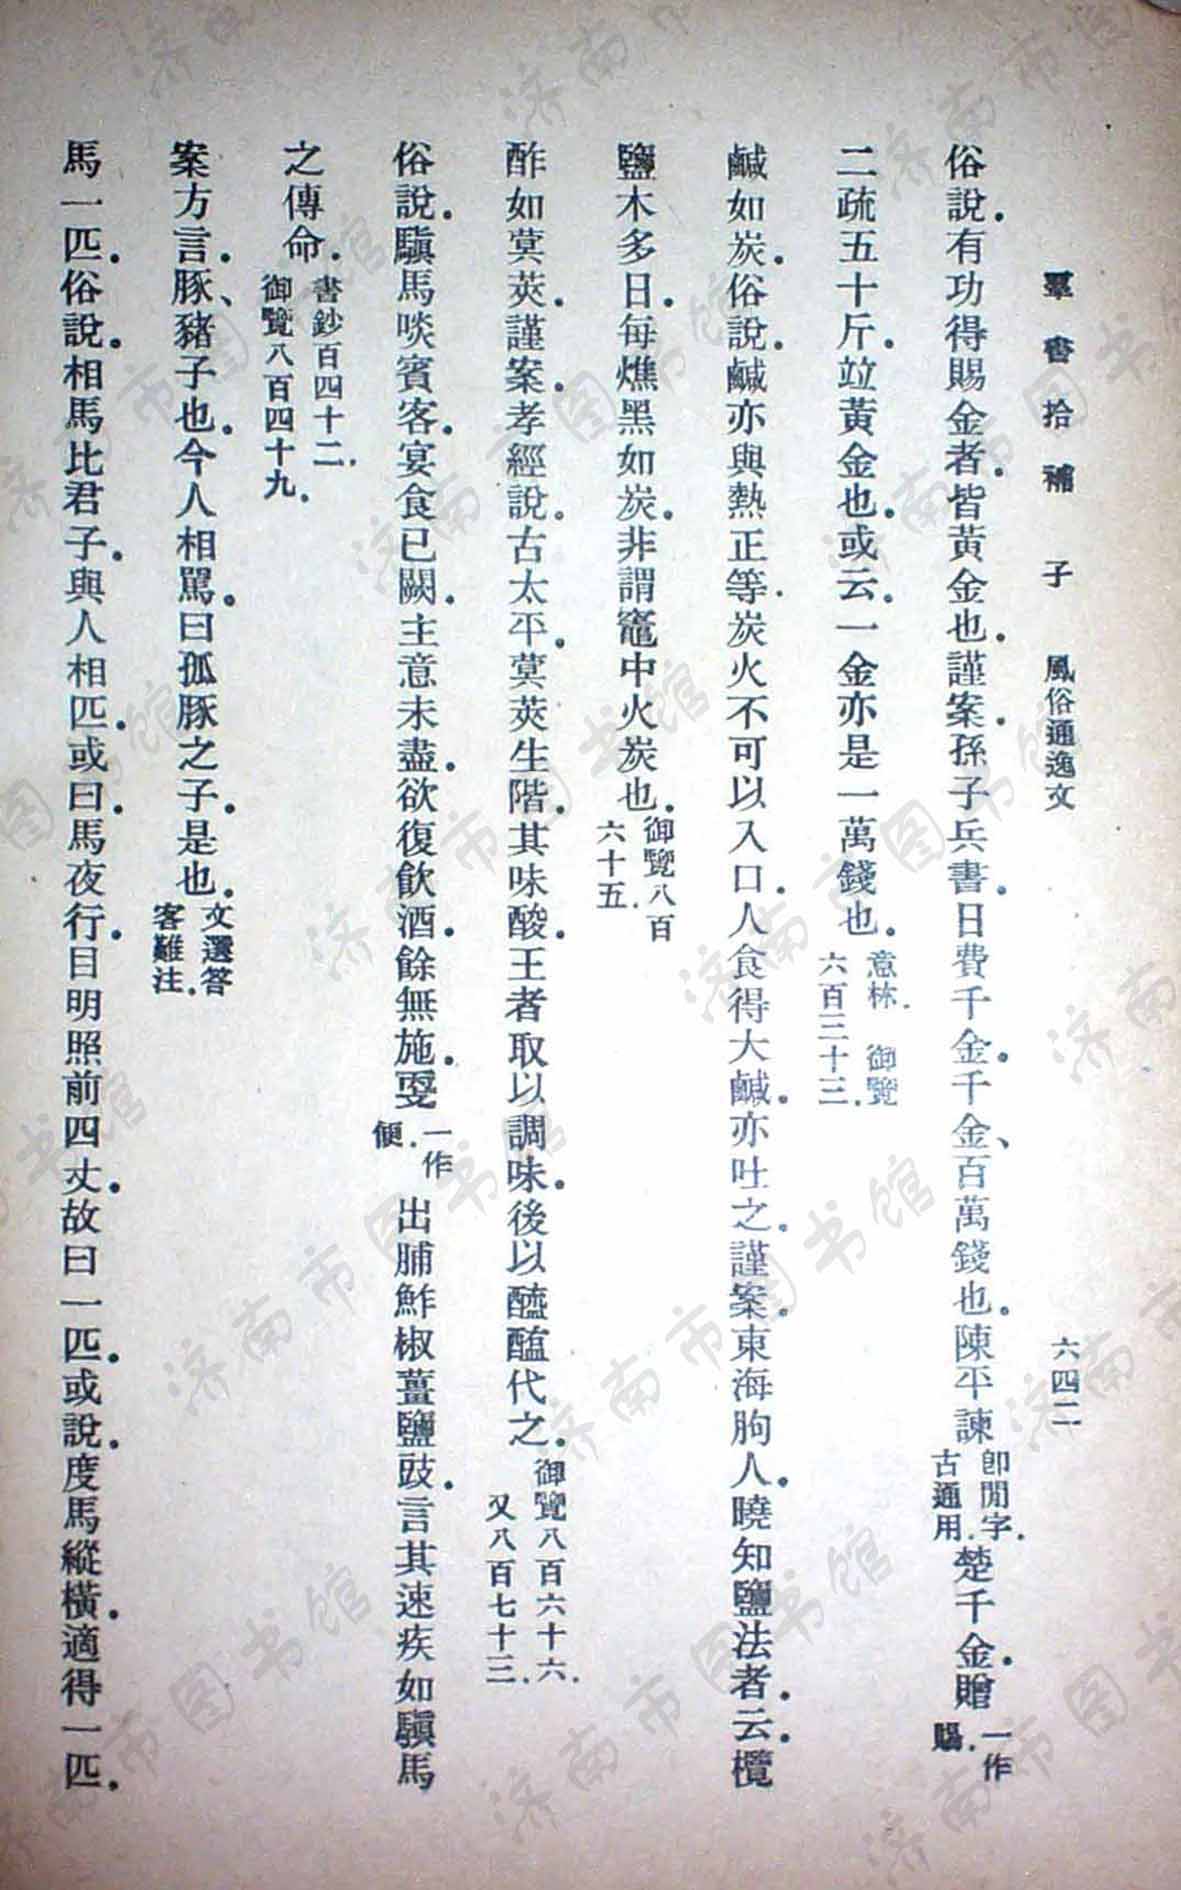 羣書拾補　子　風俗通逸文　六四二
俗說．有功得賜金者．皆黃金也．謹案．孫子兵書．日費千金．千金、百萬錢也．陳平諫卽閒字．古通用．楚千金．贈一作賜．
二疏五十斤．竝黃金也．或云．一金亦是一萬錢也．意林．御覽六百三十三．
鹹如炭．俗說．鹹亦與熱正等．炭火不可以入口．人食得大鹹．亦吐之．謹案．東海朐人．曉知鹽法者．云．欖
鹽木多日．每燋黑如炭．非謂竈中火炭也．御覽八百六十五．
酢如蓂莢．謹案．孝經說．古太平．蓂莢生階．其味酸．王者取以調味．後以醯醢代之．御覽八百六十六．又八百七十三．
俗說．驥馬啖賓客．宴食已闕．主意未盡．欲復飮酒．餘無施．更一作便．出脯鮓椒薑鹽豉．言其速疾如驥馬
之傳命．書鈔百四十二．御覽八百四十九．
案方言．豚、豬子也．今人相罵．曰孤豚之子．是也．文選答客難注．
馬一匹．俗說．相馬比君子．與人相匹．或曰．馬夜行．目明照前四丈．故曰一匹．或說．度馬縱橫．適得一匹．